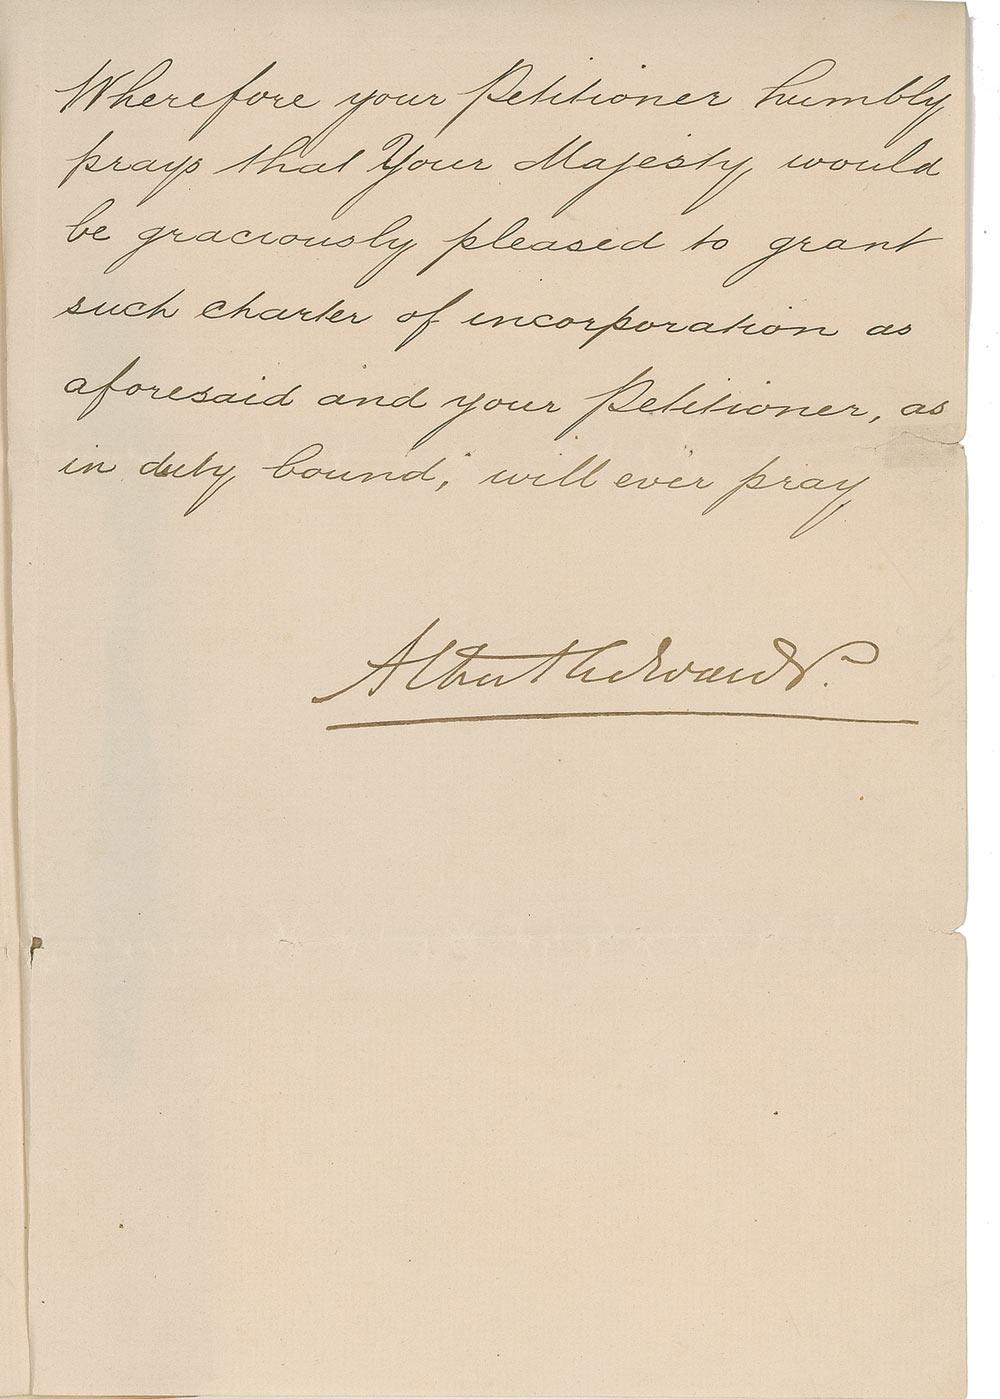 Wherefore your Petitioner humbly
prays that Your Majesty would
be graciously pleased to grant
such charter of incorporation as
aforesaid and your Petitioner, as
in duty bound, will ever pray
Albert Edward P.